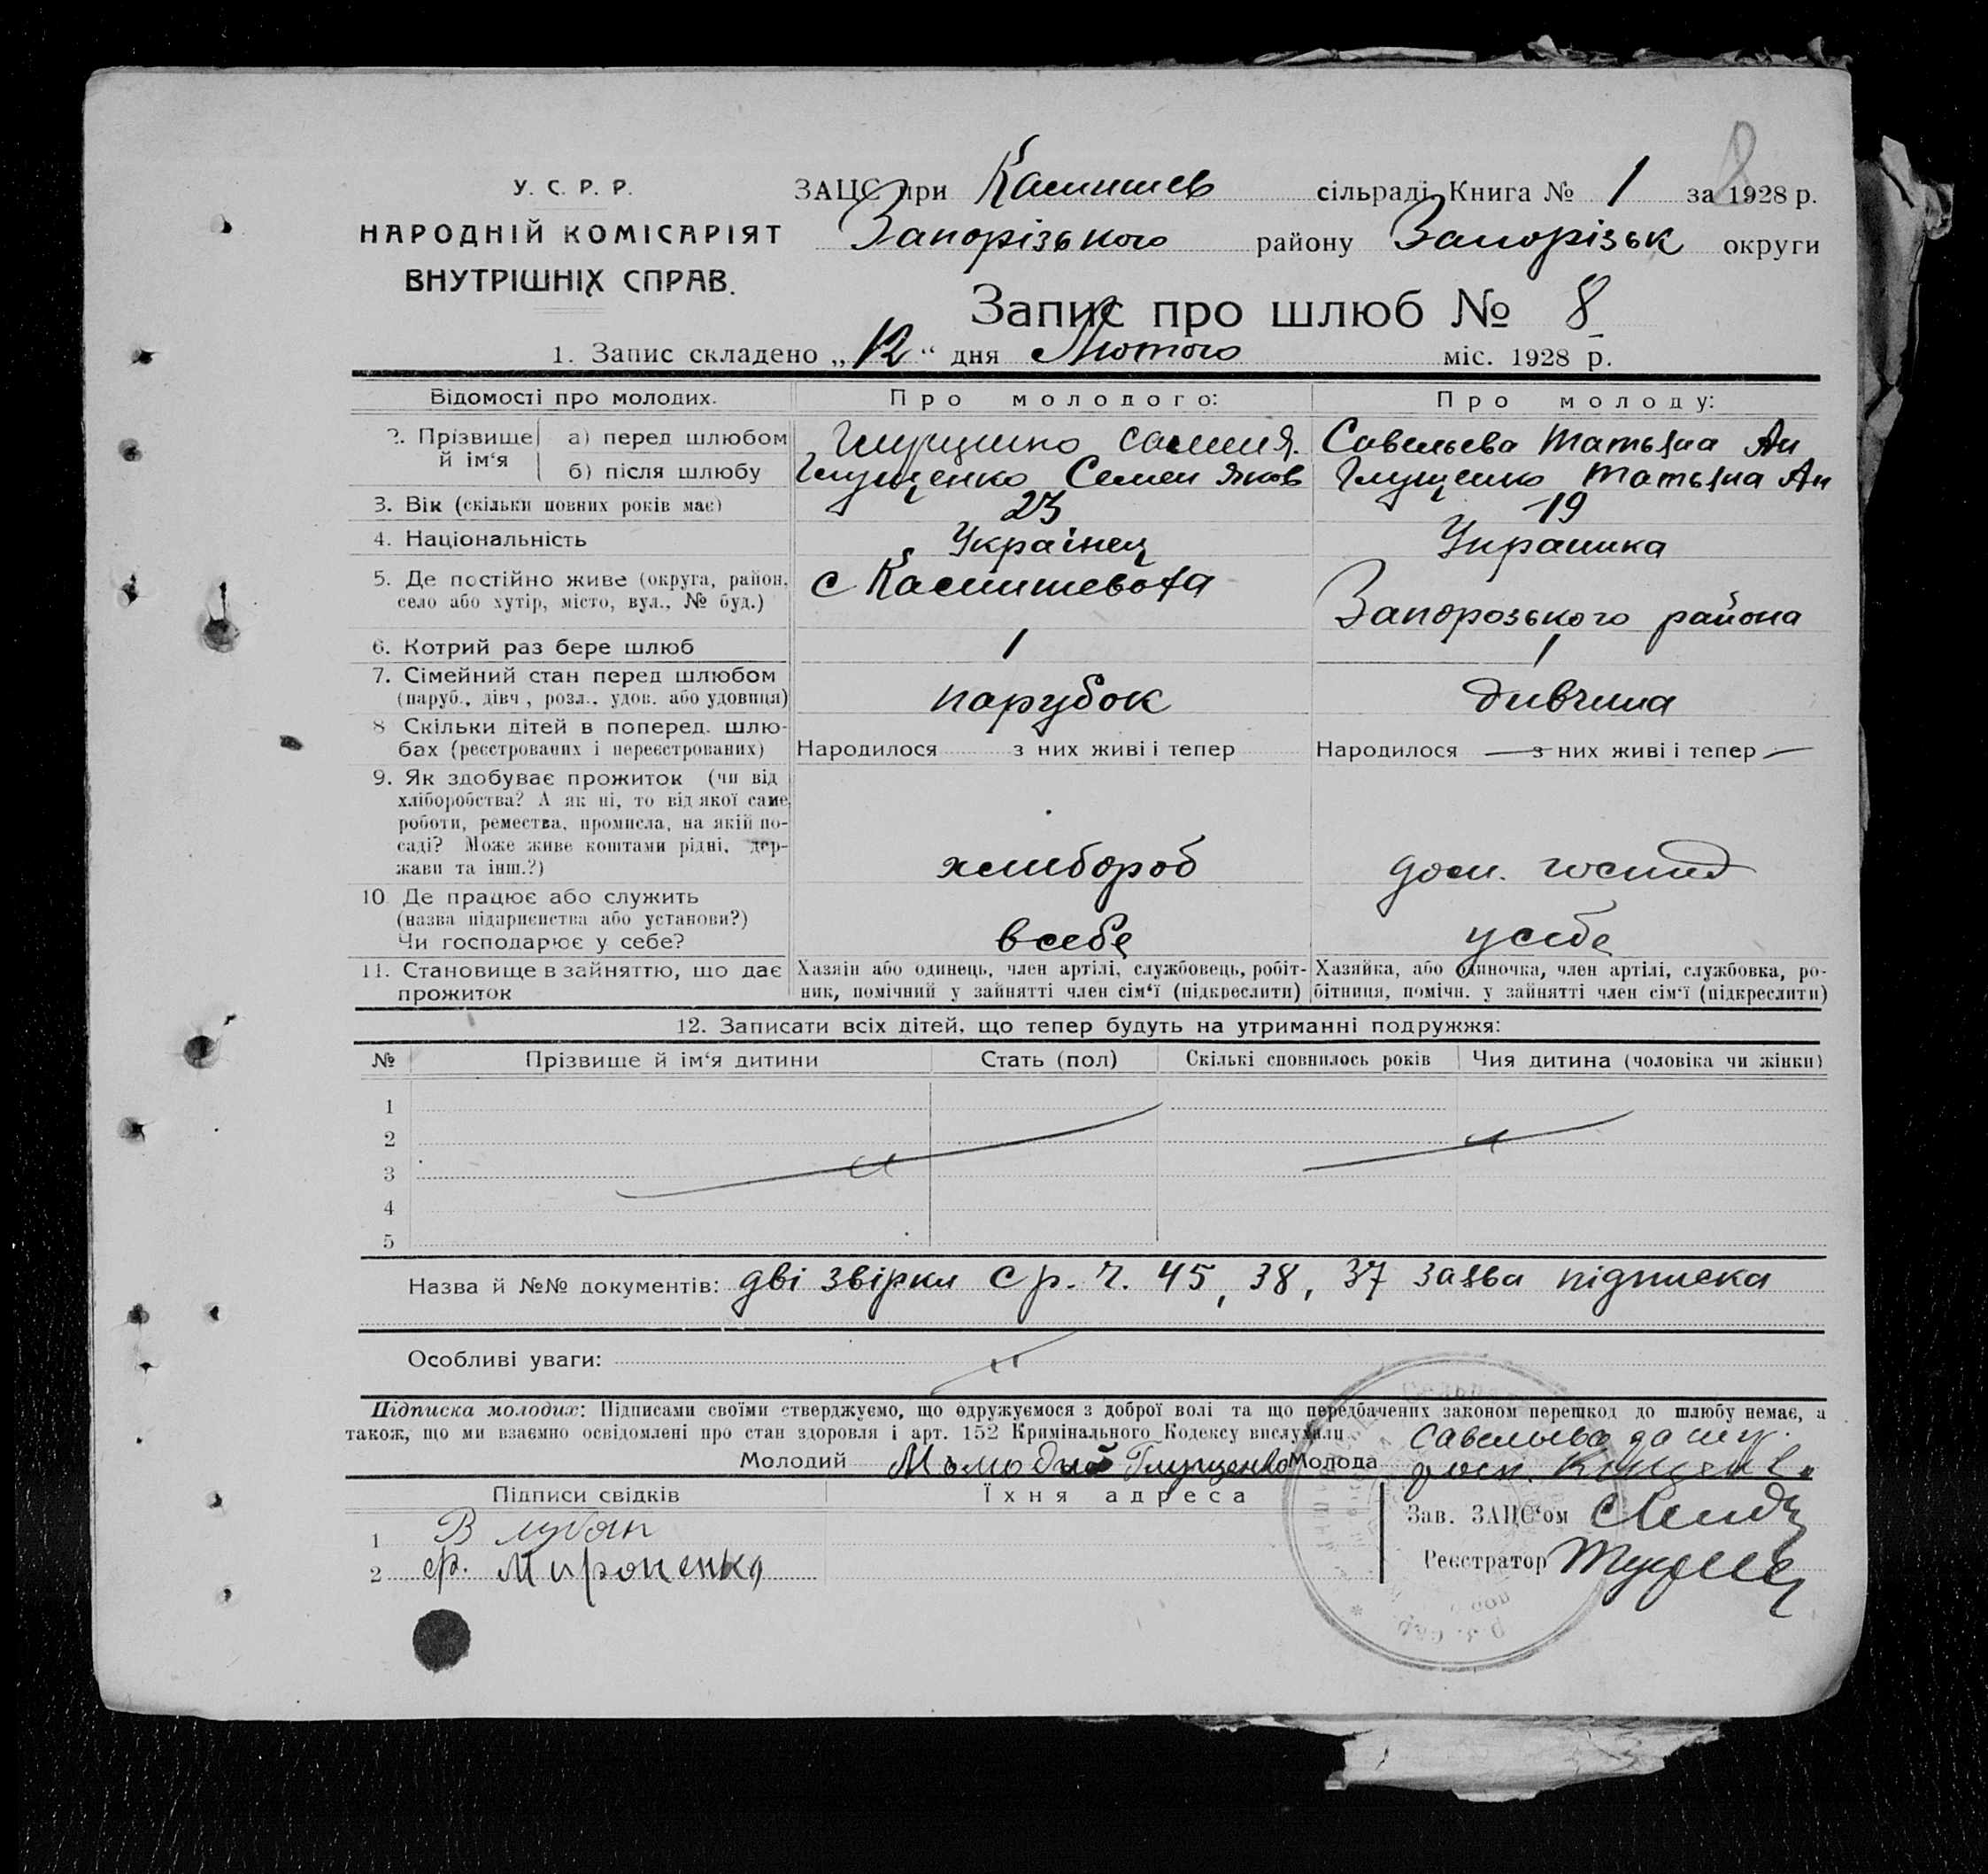 8
У. С. Р. Р.
НАРОДНІЙ КОМІСАРІЯТ
ВНУТРІШНІХ СПРАВ.
ЗАЦС при Камишев сільраді Книга № 1 за 1928 р.
Запорізького району Запорізьк округи
Запис про шлюб № 8
1. Запис складено „12“ дня Лютого міс. 1928 р.
Відомості про молодих. Про молодого: Про молоду:
2. Прізвище й ім‘я а) перед шлюбом Савельева Татьяна Ан
б) після шлюбу Глущенко Семен Яков Глущенко Татьяна Ан
3. Вік (скільки повних років має) 23 19
4. Національність Українец Украинка
5. Де постійно живе (округа, район, село або хутір, місто, вул., № буд.) с Камишеваха Запорозького района
6. Котрий раз бере шлюб 1 1
7. Сімейний стан перед шлюбом (паруб., дівч, розл., удов. або удовиця) парубок дивчина
8 Скільки дітей в поперед. шлюбах (реєстрованих і нереєстрованих) Народилося з них живі і тепер Народилося з них живі і тепер
9. Як здобуває прожиток (чи від
хліборобства? А як ні, то від якої саме
роботи, ремества, промисла, на якій по-
саді? Може живе коштами рідні, дер-
жави та інш.?) хлибороб дом. господ
10. Де працює або служить
(назва підприємства або установи?)
Чи господарює у себе? всебе усебе
11. Становище в зайняттю, що дає прожиток Хазяїн або одинець, член артілі, службовець, робіт-ник, помічний у зайнятті член сім‘ї (підкреслити) Хазяйка, або одиночка, член артілі, службовка, ро-бітниця, помічн. у зайнятті член сім‘ї (підкреслити)
12. Записати всіх дітей, що тепер будуть на утриманні подружжя:
№ Прізвище й ім‘я дитини Стать (пол) Скількі сповнилось років Чия дитина (чоловіка чи жінки)
1
2
3
4
5
Назва й №№ документів: дві звірки ср. ч. 45, 38, 37 заява підписка
Особливі уваги:
Підписка молодих: Підписами своїми стверджуємо, що одружуємося з доброї волі та що передбачених законом перешкод до шлюбу немає, а
також, що ми взаємно освідомлені про стан здоровля і арт. 152 Кримінального Кодексу вислухали
Молодий Глущенко Молода Савельева
Підписи свідків Їхня адреса
1 В
2 Ф. Мироненко
Зав. ЗАЦС‘ом
Реєстратор